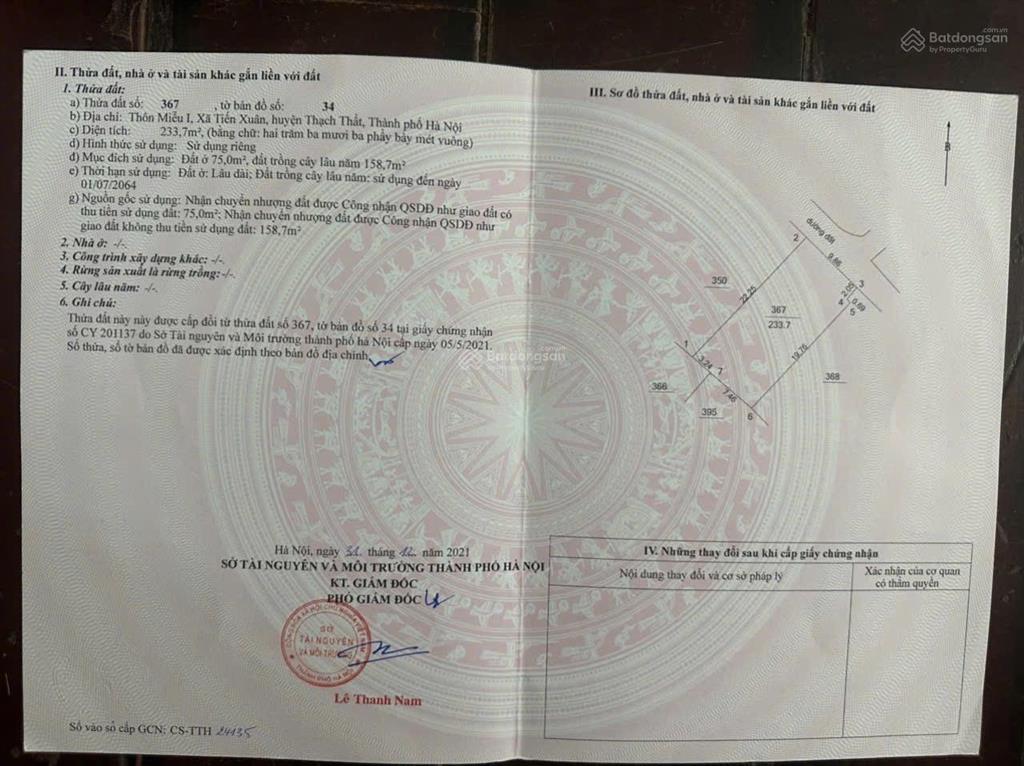 Batdongsan.com.vn
by PropertyGuru
II. Thửa đất, nhà ở và tài sản khác gắn liền với đất
1. Thửa đất:
a) Thửa đất số: 367 , tờ bản đồ số: 34
b) Địa chỉ: Thôn Miễu I, Xã Tiến Xuân, huyện Thạch Thất, Thành phố Hà Nội
c) Diện tích: 233,7m², (bằng chữ: hai trăm ba mươi ba phẩy bảy mét vuông)
d) Hình thức sử dụng: Sử dụng riêng
đ) Mục đích sử dụng: Đất ở 75,0m², đất trồng cây lâu năm 158,7m²
e) Thời hạn sử dụng: Đất ở: Lâu dài; Đất trồng cây lâu năm: sử dụng đến ngày
01/07/2064
g) Nguồn gốc sử dụng: Nhận chuyển nhượng đất được Công nhận QSDĐ như giao đất có
thu tiền sử dụng đất: 75,0m²; Nhận chuyển nhượng đất được Công nhận QSDĐ như
giao đất không thu tiền sử dụng đất: 158,7m²
2. Nhà ở: -/-.
3. Công trình xây dựng khác: -/-.
4. Rừng sản xuất là rừng trồng: -/-.
5. Cây lâu năm: -/-.
6. Ghi chú:
Thửa đất này này được cấp đổi từ thửa đất số 367, tờ bản đồ số 34 tại giấy chứng nhận
số CY 201137 do Sở Tài nguyên và Môi trường thành phố hà Nội cấp ngày 05/5/2021.
Số thửa, số tờ bản đồ đã được xác định theo bản đồ địa chính.
Batdongsan
by PropertyGuru
Hà Nội, ngày 31 tháng 12 năm 2021
SỞ TÀI NGUYÊN VÀ MÔI TRƯỜNG THÀNH PHỐ HÀ NỘI
KT. GIÁM ĐỐC
PHÓ GIÁM ĐỐC
CỘNG HÒA XÃ HỘI CHỦ NGHĨA VIỆT NAM
SỞ
TÀI NGUYÊN
VÀ MÔI TRƯỜNG
THÀNH PHỐ HÀ NỘI
Lê Thanh Nam
Số vào sổ cấp GCN: CS-TTH 24135
III. Sơ đồ thửa đất, nhà ở và tài sản khác gắn liền với đất
B
đường đất
2
9.86
3
350
22.25
2.00
0.69
4
5
367
233.7
1
3.24
7
19.76
368
366
7.46
395
6
IV. Những thay đổi sau khi cấp giấy chứng nhận
Nội dung thay đổi và cơ sở pháp lý
Xác nhận của cơ quan
có thẩm quyền